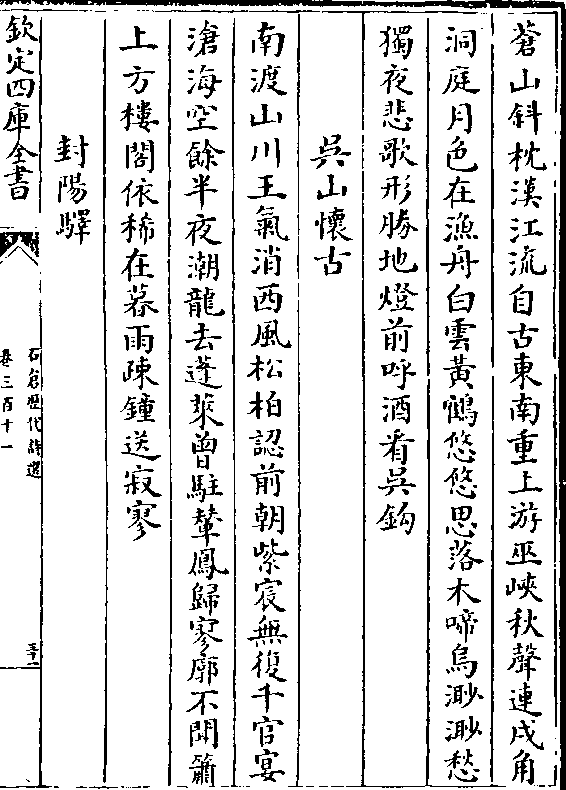 蒼山斜枕漢江流自古東南重上游巫峽秋聲連戍角
洞庭月色在漁舟白雲黃鶴悠悠思落木啼烏渺渺愁
獨夜悲歌形勝地燈前呼酒看吳鈎
吳山懷古
南渡山川王氣消西風松柏認前朝紫宸無復千官宴
滄海空餘半夜潮龍去蓬萊曾駐輦鳳歸寥廓不聞簫
上方樓閣依稀在暮雨疎鐘送寂寥
封陽驛
欽定四庫全書
石倉歷代詩選
卷三百十一